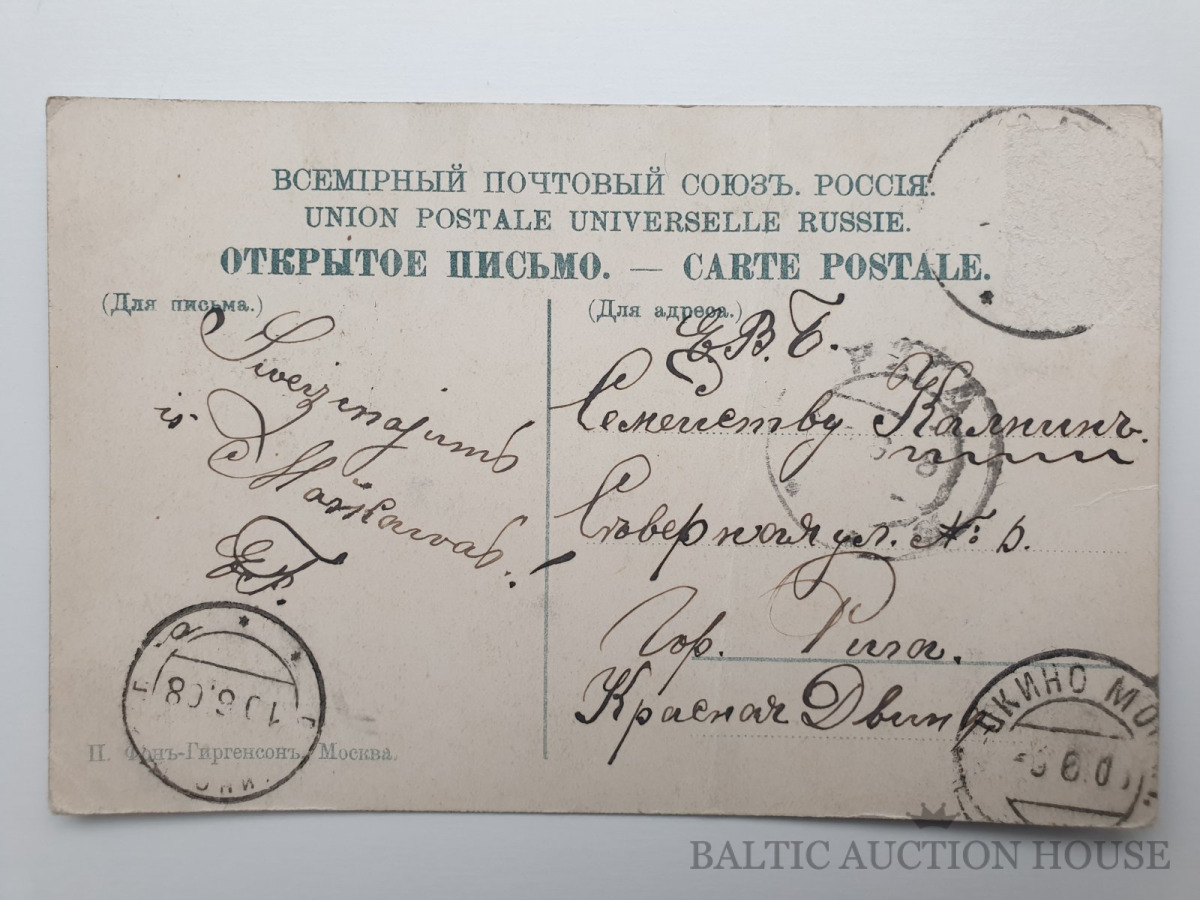 ВСЕМІРНЫЙ ПОЧТОВЫЙ СОЮЗЪ. РОССІЯ.
UNION POSTALE UNIVERSELLE RUSSIE.
ОТКРЫТОЕ ПИСЬМО. — CARTE POSTALE.
(Для письма.)
Sweizinajums
is
Maskawas!
(Для адреса.)
Е.В.Б.
Семейству Калнинъ.
Сѣверная ул. №
Гор. Рига.
Красная Двина
10.6.08
П. Фонъ-Гиргенсонъ, Москва.
BALTIC AUCTION HOUSE